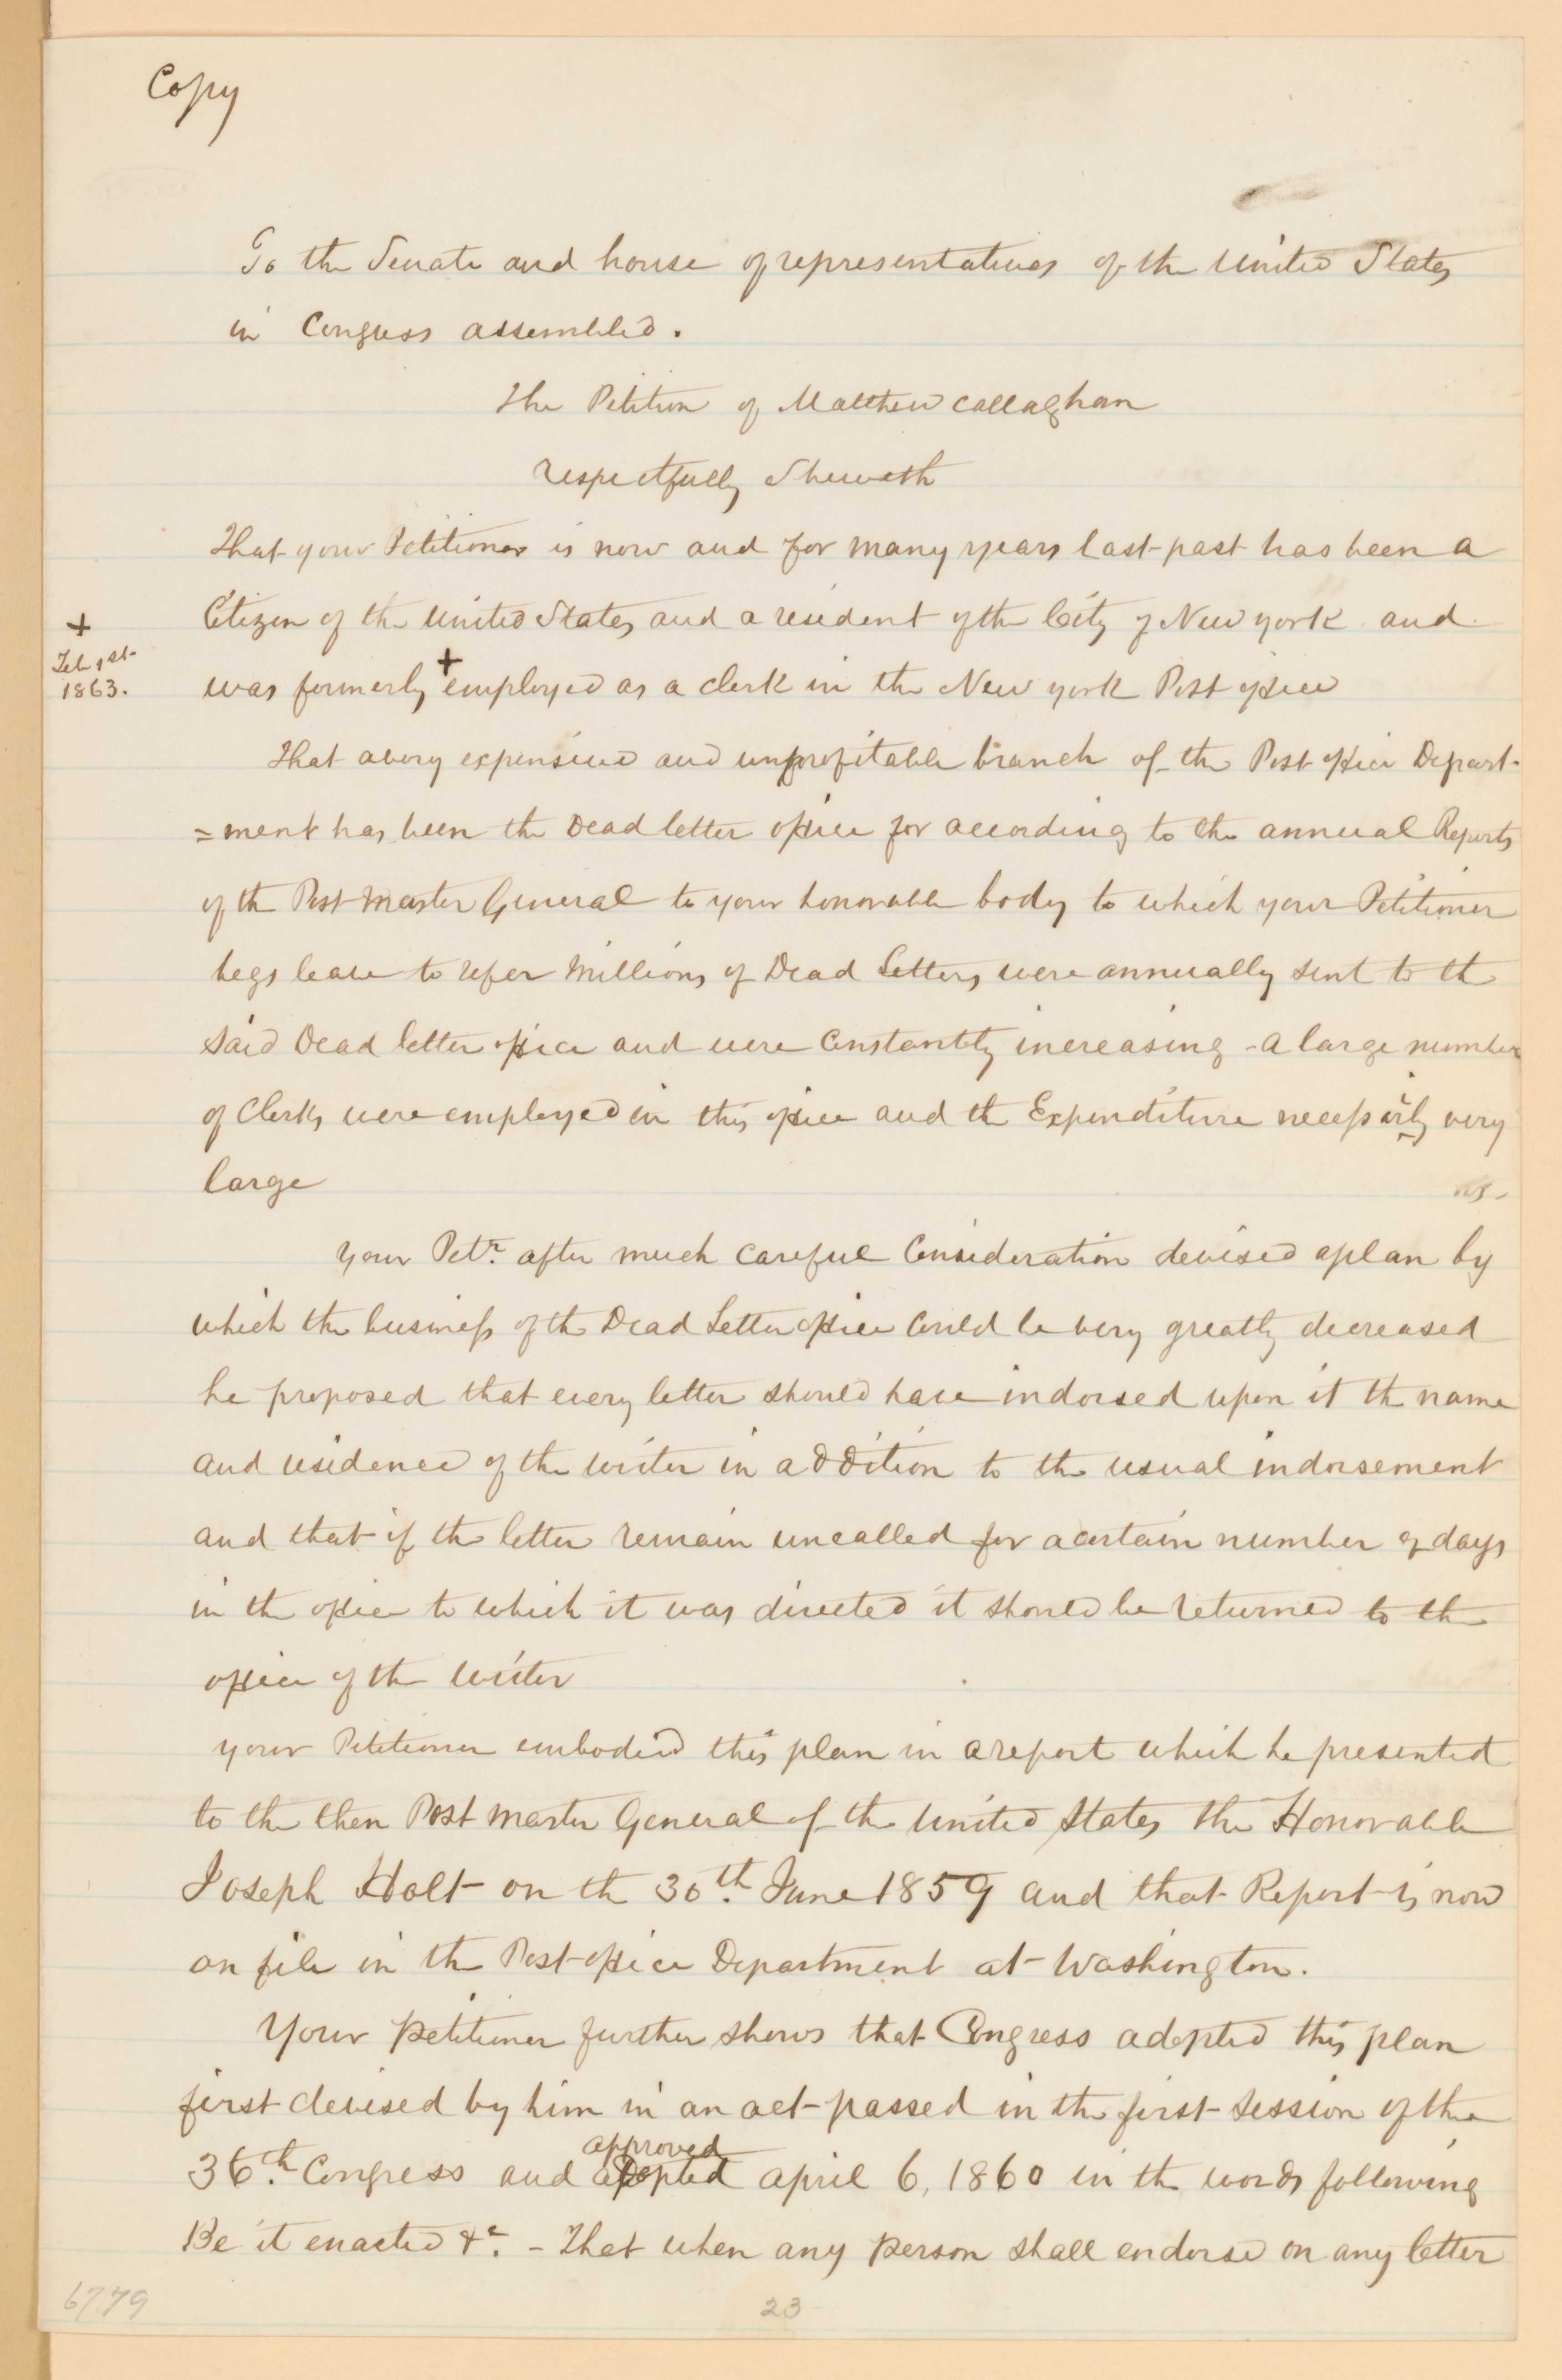 Copy
To the Senate and house of representatives of the United States
in Congress assembled.
The Petition of Matthew Callaghan
respectfully Sheweth
That your Petitioner is now and for many years last past has been a
Citizen of the United States and a resident of the City of New york and
+
Feb 1st
1863.
was formerly + employed as a clerk in the New york Post office
That a very expensive and unprofitable branch of the Post office Depart-
=ment has been the Dead letter office for according to the annual Reports
of the Post Master General to your honorable body to which your Petitioner
begs leave to refer Millions of Dead Letters were annually sent to the
said Dead letter office and were Constantly increasing - a large number
of Clerks were employed in this office and the Expenditure necessarily very
large
your Petr. after much careful Consideration devised a plan by
which the business of the Dead Letter office Could be very greatly decreased
he proposed that every letter should have indorsed upon it the name
and residence of the writer in addition to the usual indorsement
and that if the letter remain uncalled for a certain number of days
in the office to which it was directed it should be returned to the
office of the writer
your Petitioner embodied this plan in a report which he presented
to the then Post Master General of the United States the Honorable
Joseph Holt on the 30th. June 1859 and that Report is now
on file in the Post office Department at Washington.
Your petitioner further shows that Congress adopted this plan
first devised by him in an act passed in the first Session of the
approved
36th. Congress and adopted april 6, 1860 in the words following
Be it enacted &c. - That when any person shall endorse on any letter
6779
23